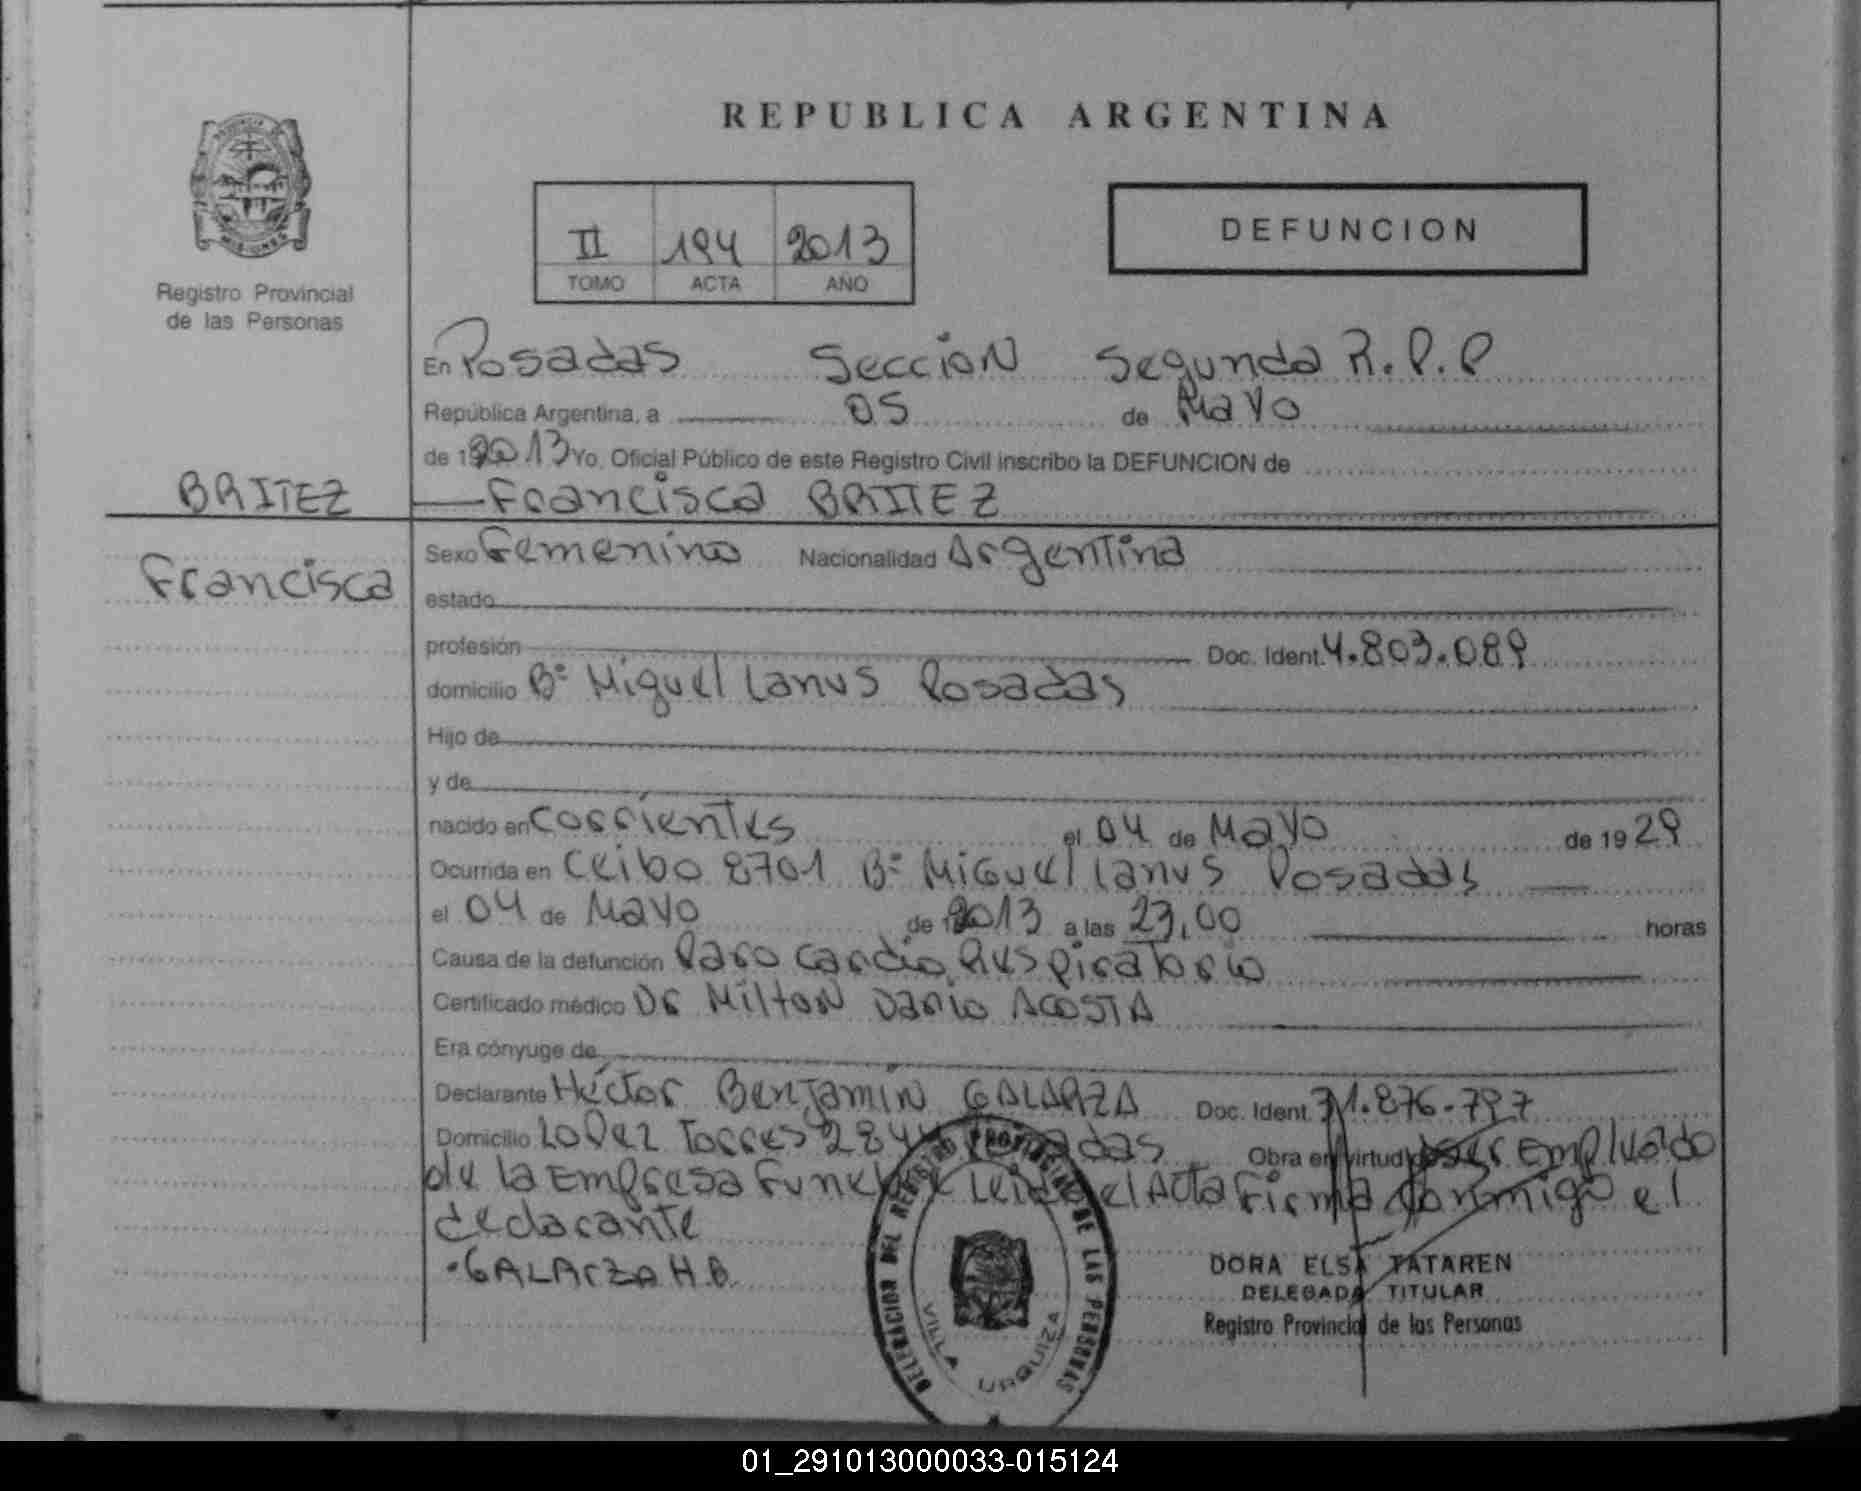 REPUBLICA ARGENTINA
DEFUNCION
II 194 2013
TOMO ACTA AÑO
PROVINCIA
MISIONES
Registro Provincial
de las Personas
En Posadas Seccion Segunda R.P.P
República Argentina, a 05 de Mayo
de 2013 Yo, Oficial Público de este Registro Civil inscribo la DEFUNCION de
BRITEZ
Francisca BRITEZ
Francisca
Sexo Femenino Nacionalidad Argentina
estado
profesión Doc. Ident. 4.803.089
domicilio Bº Miguel Lanus Posadas
Hijo de
y de
nacido en Corrientes el 04 de Mayo de 1929
Ocurrida en Ceibo 8701 Bº Miguel Lanus Posadas
el 04 de Mayo de 2013 a las 23,00 horas
Causa de la defunción Paro Cardio Respiratorio
Certificado médico Dr Milton Dario ACOSTA
Era cónyuge de
Declarante Héctor Benjamin GALARZA Doc. Ident. 31.876.797
Domicilio Lopez Torres Posadas Obra en virtud ser Empleado
de la Empresa Leida el Acta Firma Conmigo el
declarante
GALArza H.B.
DELEGACION DEL REGISTRO PROVINCIAL DE LAS PERSONAS
VILLA URQUIZA
DORA ELSA TATAREN
DELEGADA TITULAR
Registro Provincial de las Personas
01_291013000033-015124